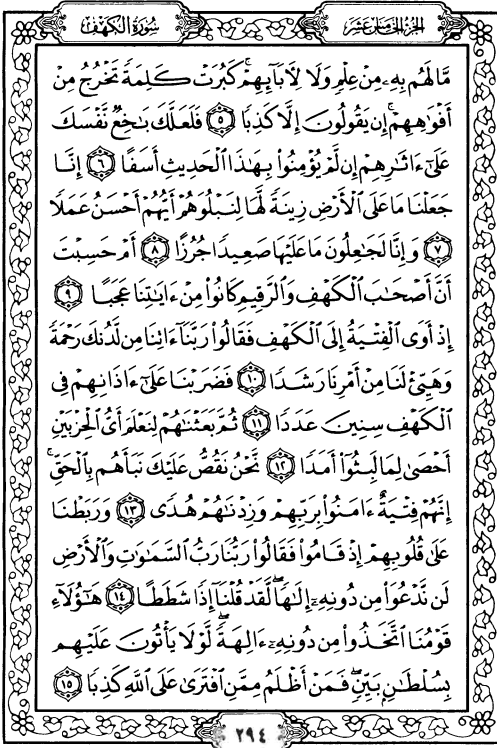 سُورَةُ الْكَهْفِ
الجُزْءُ الخَامِسَ عَشَرَ
مَّا لَهُم بِهِۦ مِنْ عِلْمٍ وَلَا لِأٓبَآئِهِمْ ۚ كَبُرَتْ كَلِمَةً تَخْرُجُ مِنْ
أَفْوَٰهِهِمْ ۚ إِن يَقُولُونَ إِلَّا كَذِبًا ٥ فَلَعَلَّكَ بَٰخِعٌ نَّفْسَكَ
عَلَىٰٓ ءَاثَٰرِهِمْ إِن لَّمْ يُؤْمِنُوا۟ بِهَٰذَا ٱلْحَدِيثِ أَسَفًا ٦ إِنَّا
جَعَلْنَا مَا عَلَى ٱلْأَرْضِ زِينَةً لَّهَا لِنَبْلُوَهُمْ أَيُّهُمْ أَحْسَنُ عَمَلًا
٧ وَإِنَّا لَجَٰعِلُونَ مَا عَلَيْهَا صَعِيدًا جُرُزًا ٨ أَمْ حَسِبْتَ
أَنَّ أَصْحَٰبَ ٱلْكَهْفِ وَٱلرَّقِيمِ كَانُوا۟ مِنْ ءَايَٰتِنَا عَجَبًا ٩
إِذْ أَوَى ٱلْفِتْيَةُ إِلَى ٱلْكَهْفِ فَقَالُوا۟ رَبَّنَآ ءَاتِنَا مِن لَّدُنكَ رَحْمَةً
وَهَيِّئْ لَنَا مِنْ أَمْرِنَا رَشَدًا ١٠ فَضَرَبْنَا عَلَىٰٓ ءَاذَانِهِمْ فِى
ٱلْكَهْفِ سِنِينَ عَدَدًا ١١ ثُمَّ بَعَثْنَٰهُمْ لِنَعْلَمَ أَىُّ ٱلْحِزْبَيْنِ
أَحْصَىٰ لِمَا لَبِثُوٓا۟ أَمَدًا ١٢ نَّحْنُ نَقُصُّ عَلَيْكَ نَبَأَهُم بِٱلْحَقِّ ۚ
إِنَّهُمْ فِتْيَةٌ ءَامَنُوا۟ بِرَبِّهِمْ وَزِدْنَٰهُمْ هُدًى ١٣ وَرَبَطْنَا
عَلَىٰ قُلُوبِهِمْ إِذْ قَامُوا۟ فَقَالُوا۟ رَبُّنَا رَبُّ ٱلسَّمَٰوَٰتِ وَٱلْأَرْضِ
لَن نَّدْعُوَا۟ مِن دُونِهِۦٓ إِلَٰهًا ۖ لَّقَدْ قُلْنَآ إِذًا شَطَطًا ١٤ هَٰٓؤُلَآءِ
قَوْمُنَا ٱتَّخَذُوا۟ مِن دُونِهِۦٓ ءَالِهَةً ۖ لَّوْلَا يَأْتُونَ عَلَيْهِم
بِسُلْطَٰنٍۭ بَيِّنٍ ۖ فَمَنْ أَظْلَمُ مِمَّنِ ٱفْتَرَىٰ عَلَى ٱللَّهِ كَذِبًا ١٥
٢٩٤